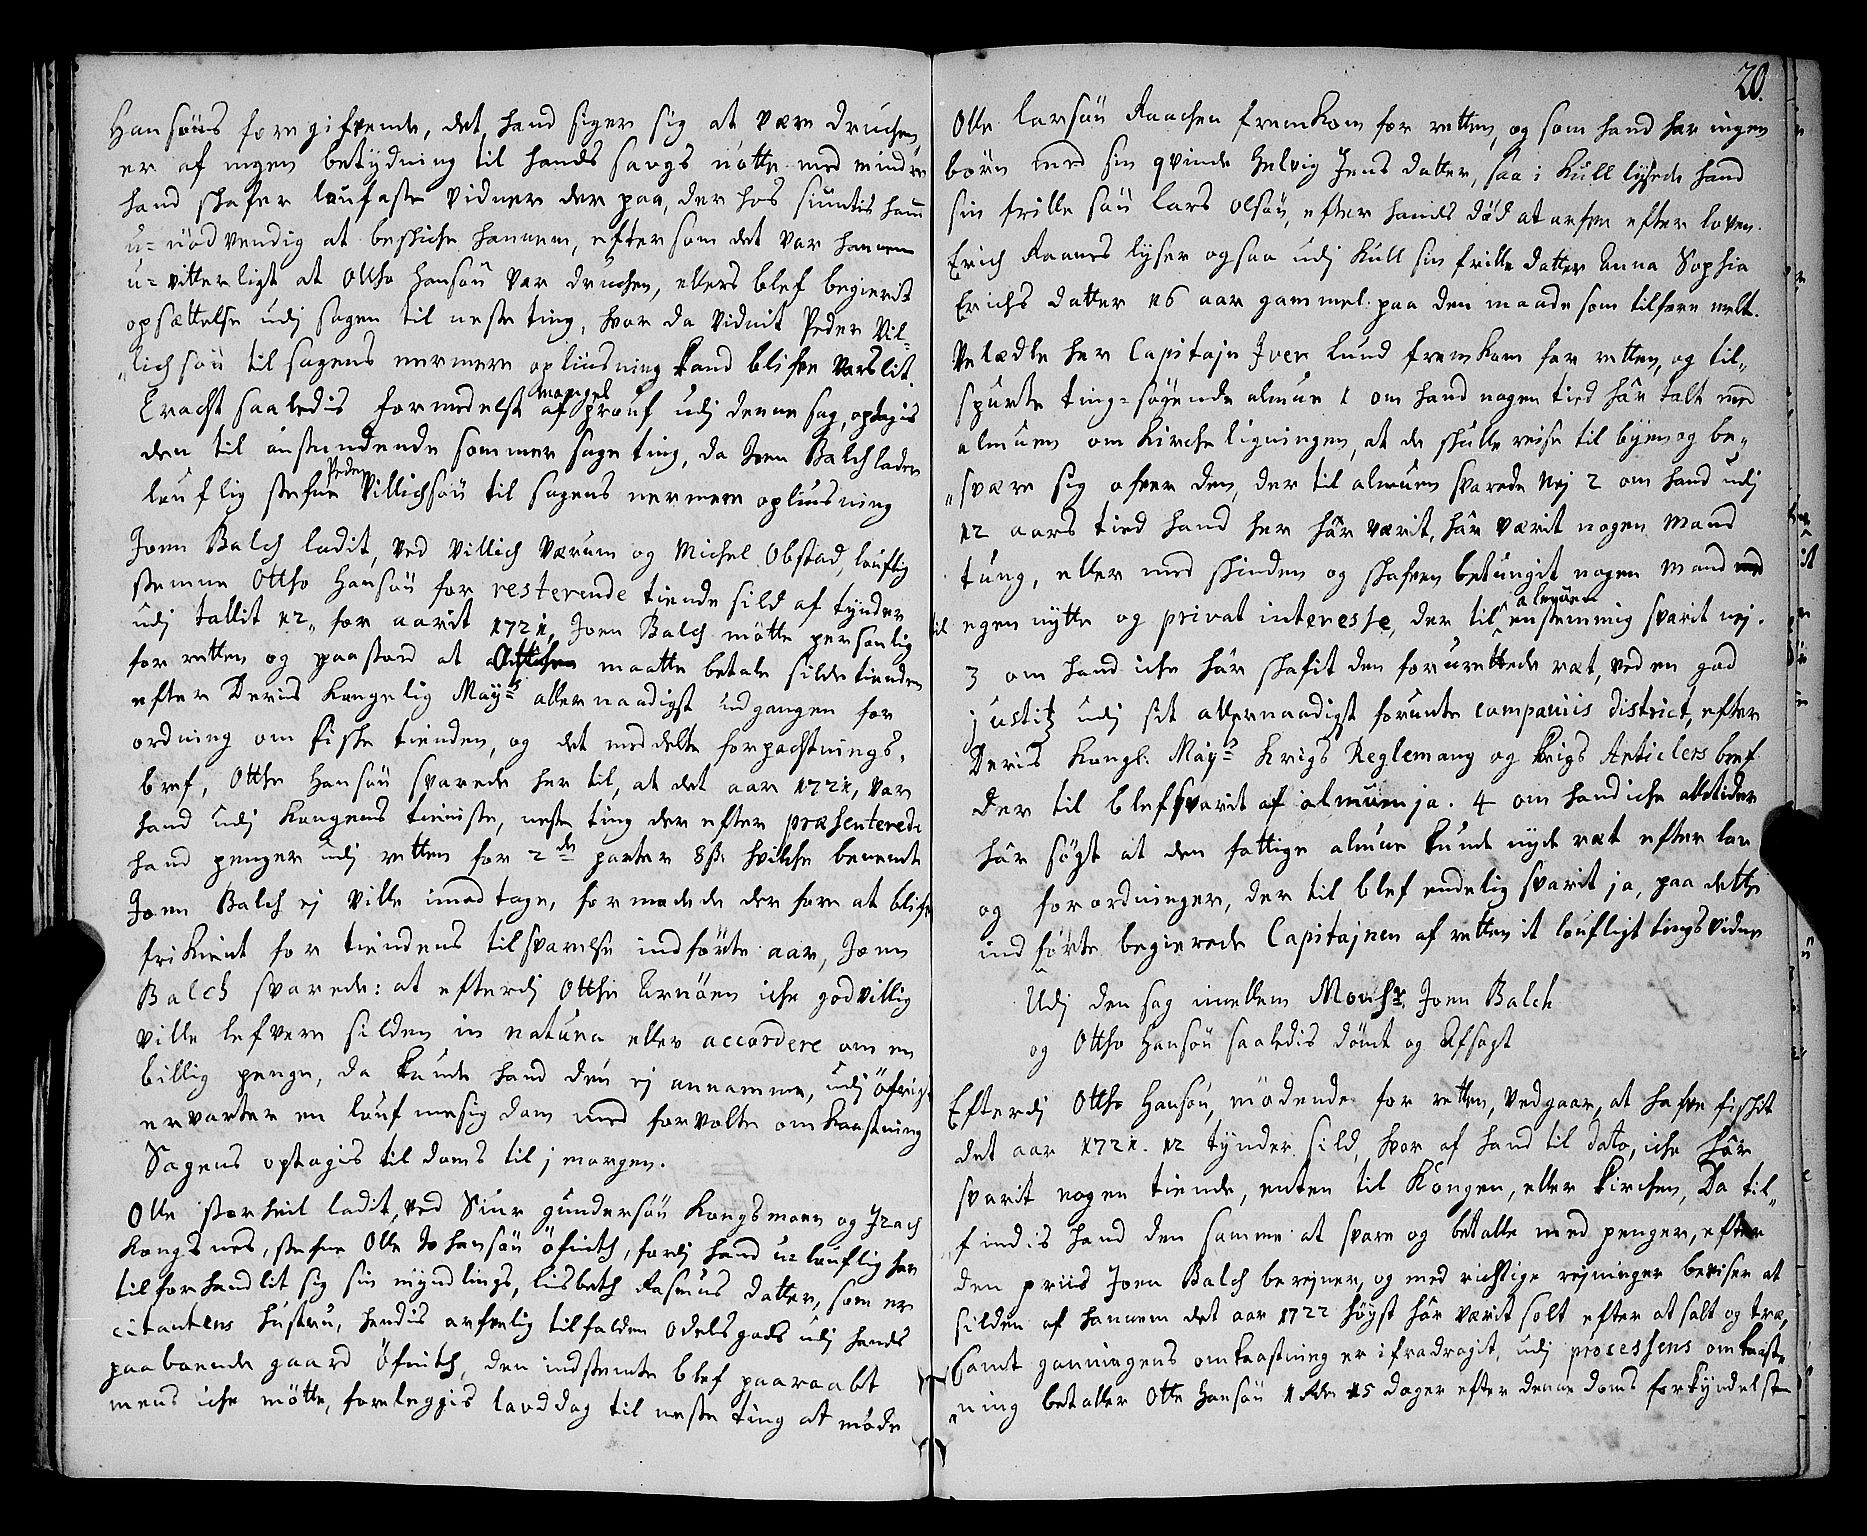 Hansøns foregifvende, det hand siger sig at være druchen,
er af ingen betydning til hands sags nøtte med mindre
hand skafer laufaste vidner der paa, der hos siuntis ham
u=nødvendig at beskiche hannem, eftersom det var hannem
u=vitterligt at Ottho Hansøn var druchen, ellers blef begierit
opsættelse udj sagen til neste ting, hvor da vidnit Peder Vil-
lichsøn til sagens nermere opliusning kand blifve varslit.
Eracht saaledis formedelst mangel af prouf udj denne sag, optagis
den til anstundende sommer sage ting, da Joen Balch lader
louflig stefne Peder Villichsøn til sagens nermere opliusning
Joen Balch ladit, ved Villich Værum og Michel Obstad, louflig
stemne Ottho Hansøn for resterende tiende sild af tynder
udj tallit 12, for aarit 1721, Joen Balch møtte personlig
for retten og paastod at Otthe maatte betale silde tienden
efter Deris Kongelig Mayts allernaadigst udgangen for
ordning om fiske tienden, og det meddelte forpachtnings,
bref, Otthe Hansøn svarede her til, at det aar 1721, var
hand udj Kongens tieniste, neste ting der efter præsenterede
hand penger udj retten for 2de parter 8 s. hvilche benemte
Joen Balch ej ville imodtage, formodede der fore at blifve
frikient for tiendens tilsvarelse indførte aar, Joen
Balch svarede: at efterdj Otthe Arnøen iche godvillig
ville lefvere silden in natura eller accordere om en
billig penge, da kunde hand den ej annamme, udj øfrigt
ervarter en loufmesig dom med forvolte omkaastning
Sagens optagis til doms til j morgen.
Olle storheil ladit, ved Siur Gundersøn Kongsmoen og Isach
Kongsnes, stefne Olle Johansøn Øfnith, fordj hand u=louflig har
tilforhandlit sig sin myndlings, Lisbeth Rasmus datter, som er
citantens hustru, hendis arfvelig tilfalden odels gods udj hands
paaboende gaard Øfnith, den indstemte blef paaraabt
mens iche møtte, foreleggis lavddag til neste ting at møde
20.
Olle Larsøn Raachen fremkom for retten, og som hand har ingen
børn med sin qvinde Helvig Jens datter, saa i Kull lysede hand
sin frille søn Lars Olsøn, efter hands død at arfve efter loven.
Erich Raanes lyser ogsaa udj Kull sin frille datter Anna Sophia
Erichs datter 16 aar gammel paa den maade som tilforn melt.
Velædle her Capitajn Iver Lund fremkom for retten, og til-
spurte ting=søgende almue 1 om hand nogen tied hâr talt med
almuen om Kirche ligningen, at de skulle reise til byen og be-
svære sig ofver den, der til almuen svarede Nej 2 om hand udj
12 aars tied hand her hâr værit, hâr værit nogen Mand
tung, eller med skinden og skafven betungit nogen Mand
til egen nytte og privat interesse, der til almuen enstemmig svarit nej.
3 om hand iche hâr skafit den forurettede ræt, ved en god
justitz udj sit allernaadigst forunte compagnis district, efter
Deris Kongl. Mayts Krigs Reglemang og Krigs Articlers bref
Der til blef svarit af almuen ja. 4 om hand iche altider
hâr søgt at den fattige almue kunde nyde ræt efter lov
og forordninger, der til blef endelig svarit ja, paa dette
indførte begierede Capitajnen af retten it loufligt tings vidne
Udj den sag imellem Monsr. Joen Balch
og Ottho Hansøn saaledis dømt og Afsagt
Efterdj Ottho Hansøn, mødende for retten, vedgaar, at hafve fisket
det aar 1721. 12 tynder sild, hvor af hand til dato, iche hâr
svarit nogen tiende, enten til Kongen, eller Kirchen, Da til-
findis hand den samme at svare og betalle med penger, efter
den priis Joen Balch berejner, og med richtige rejninger beviser at
silden af hannem det aar 1722 høyst hâr værit solt efter at salt og træ,
samt garningens omkaastning er ifradragit, udj processens omkaast-
ning betaller Otte Hansøn 1 Rdr 15 dager efter denne doms forkyndelse